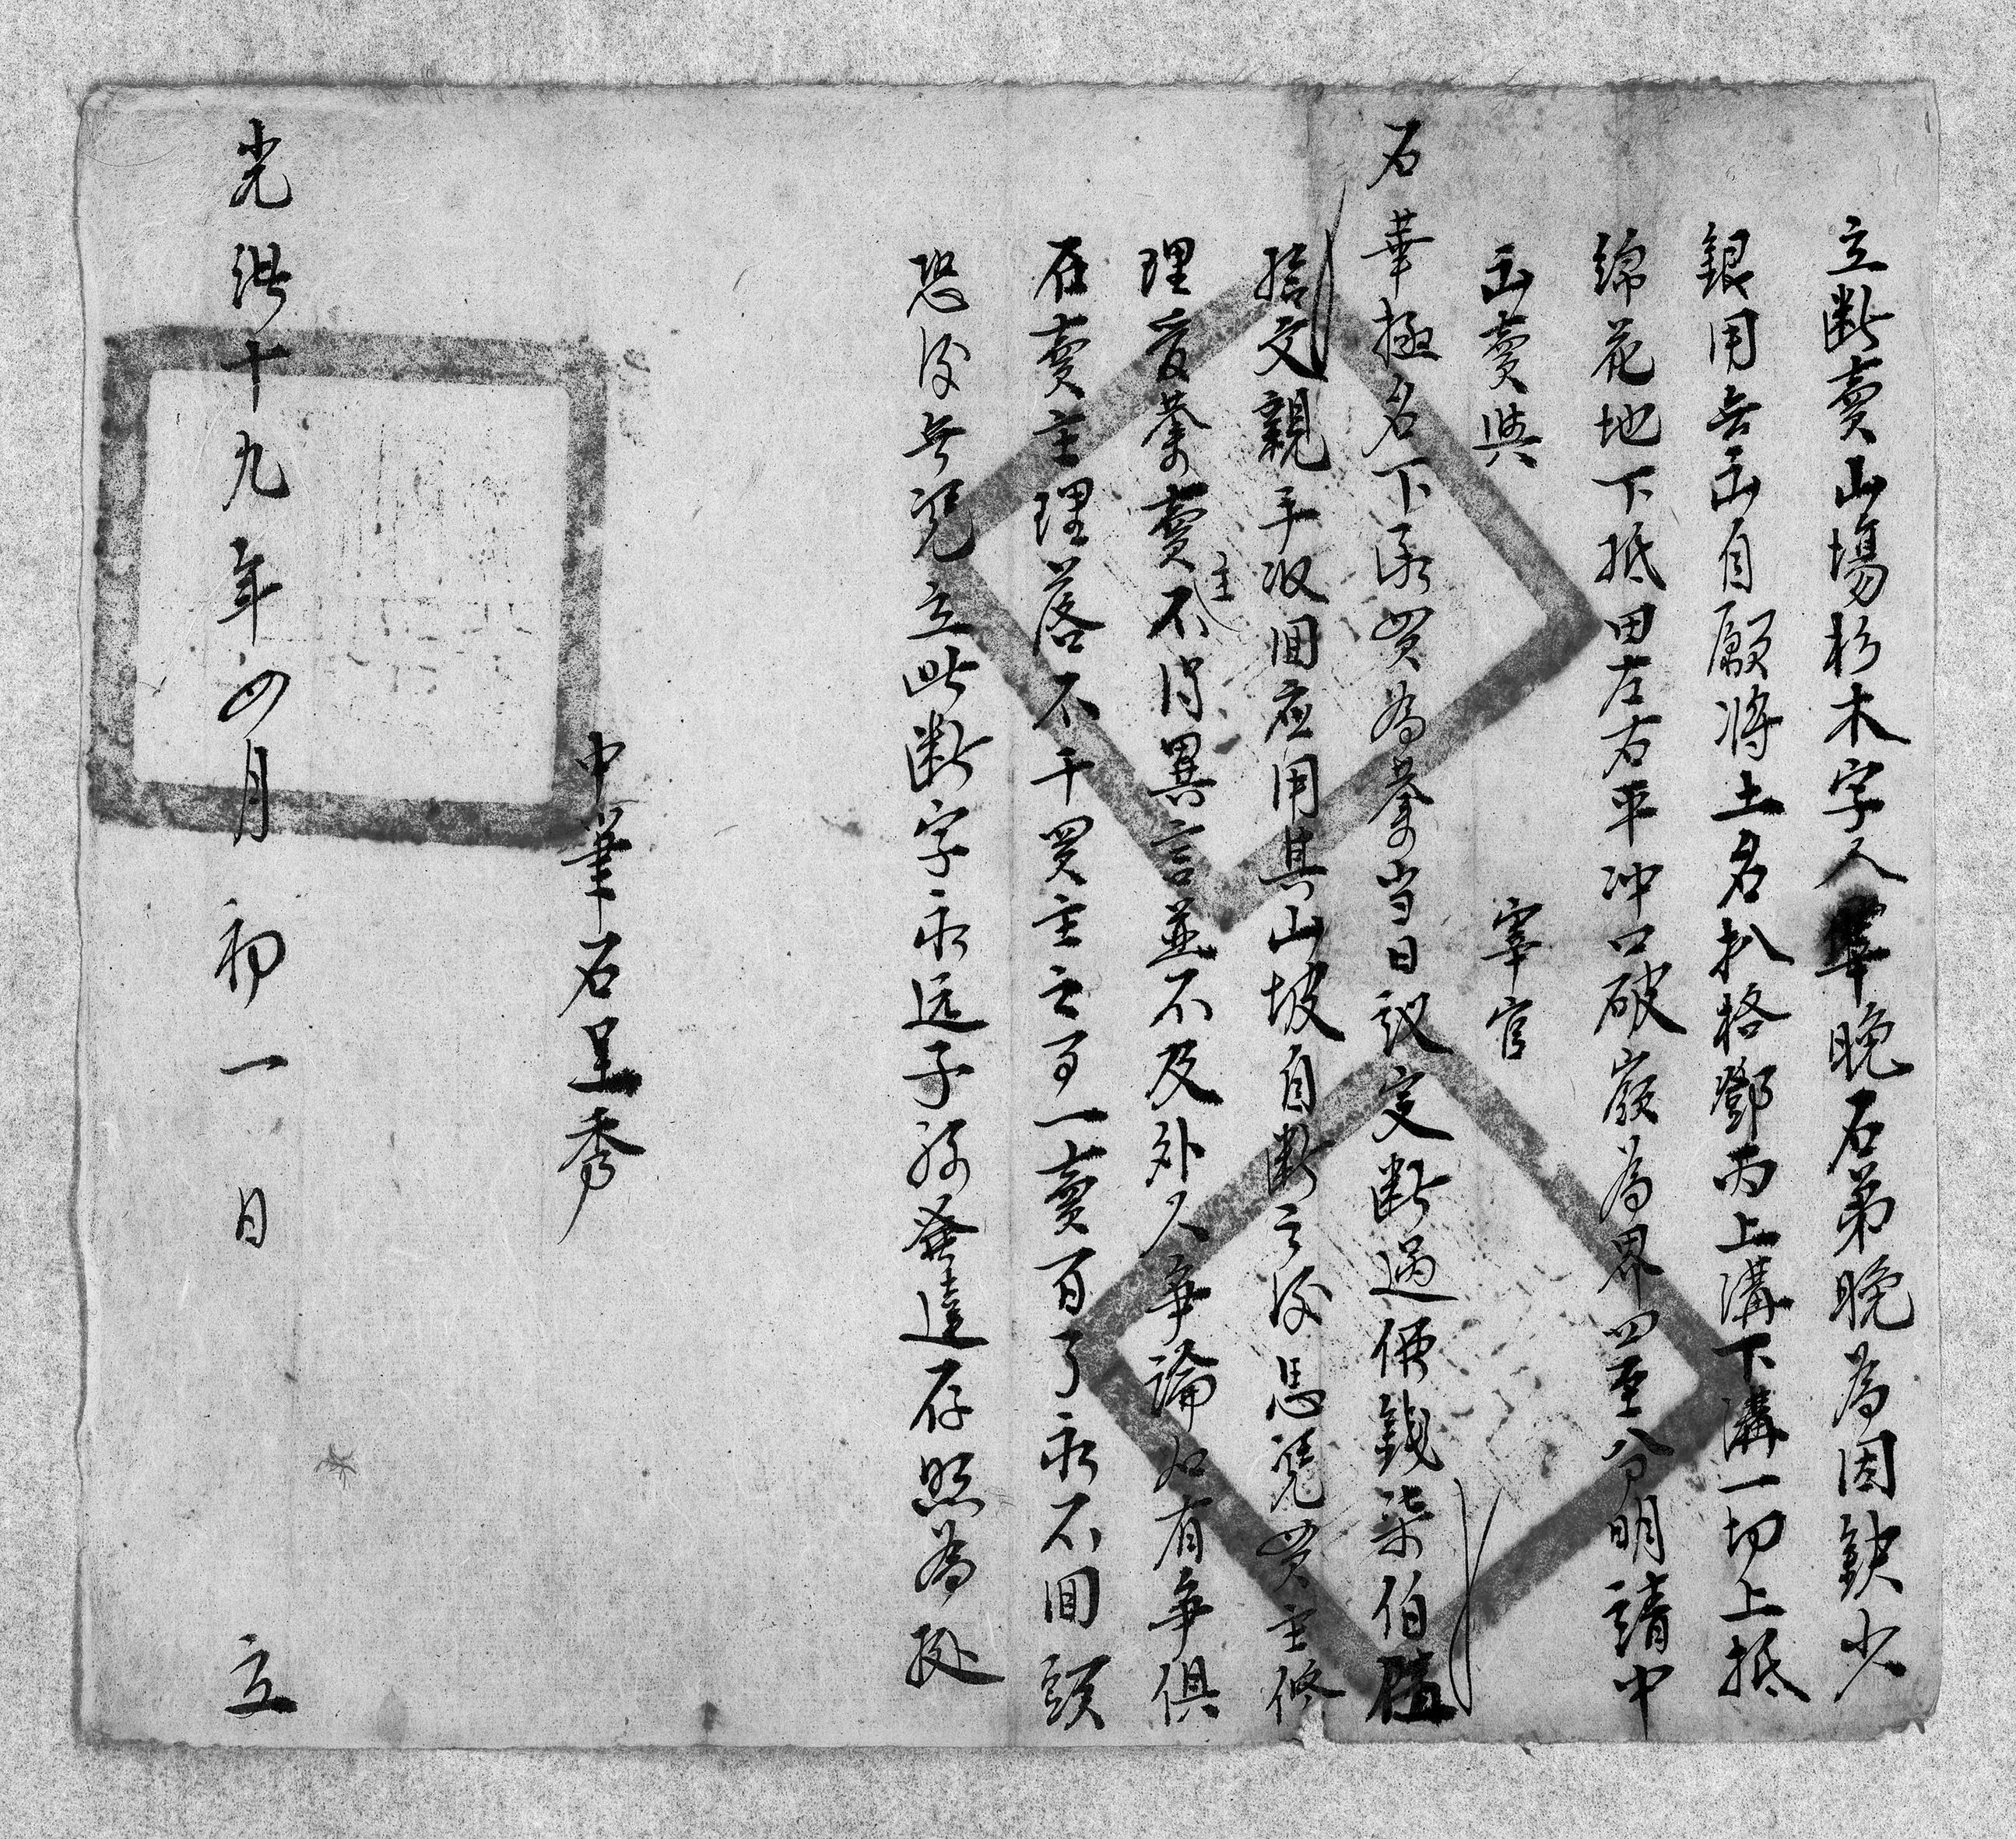 立断賣山塲杉木字人宰晚石弟晚為因缺少
銀用無出自願将土名扒格鄧丙上溝下溝一切上抵
綿花地下抵田左右平冲口破嶺為界四至分明請中
出賣與 宰官
石華極名下承買為業当日議定断過便錢柒伯
拾文親手収囬應用其山坡自断之後馬凴買主修
理爰業賣主不得異言並不及外人爭論如有爭俱
在賣主理落不干買主之事一賣百了永不囬頭
恐後無凴立此断字永远子孫發達存照為
中筆石呈秀
光緒十九年四月初一日 立